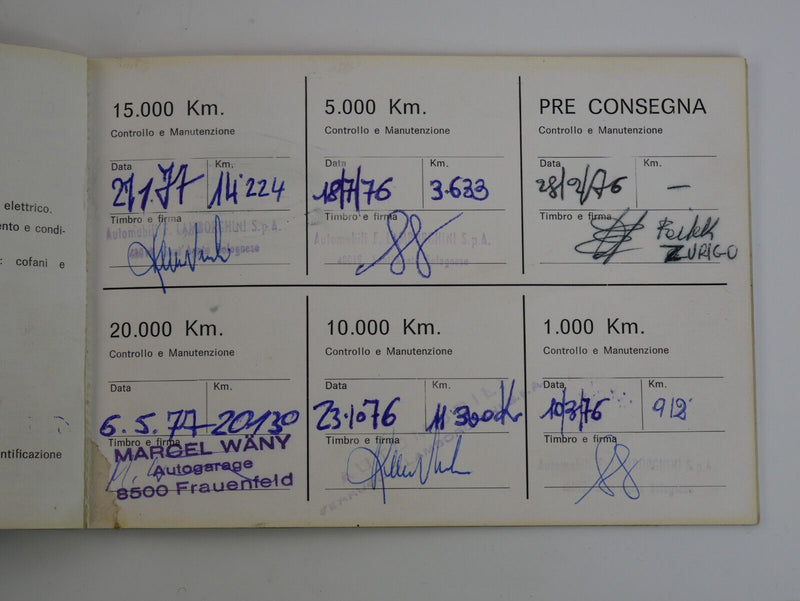 elettrico.
nto e condi-
: cofani e
ntificazione
15.000 Km.
Controllo e Manutenzione
Data Km.
14.224
Timbro e firma
Automobili F. LAMBORGHINI S.p.A.
Bolognese
5.000 Km.
Controllo e Manutenzione
Data Km.
18/7/76 3.633
Timbro e firma
Automobili F. LAMBORGHINI S.p.A.
Bolognese
PRE CONSEGNA
Controllo e Manutenzione
Data Km.
28/2/76 —
Timbro e firma
ZURIGO
20.000 Km.
Controllo e Manutenzione
Data Km.
6.5.77 20130
Timbro e firma
MARCEL WÄNY
Autogarage
8500 Frauenfeld
10.000 Km.
Controllo e Manutenzione
Data Km.
23.10.76
Timbro e firma
1.000 Km.
Controllo e Manutenzione
Data Km.
10/3/76 912
Timbro e firma